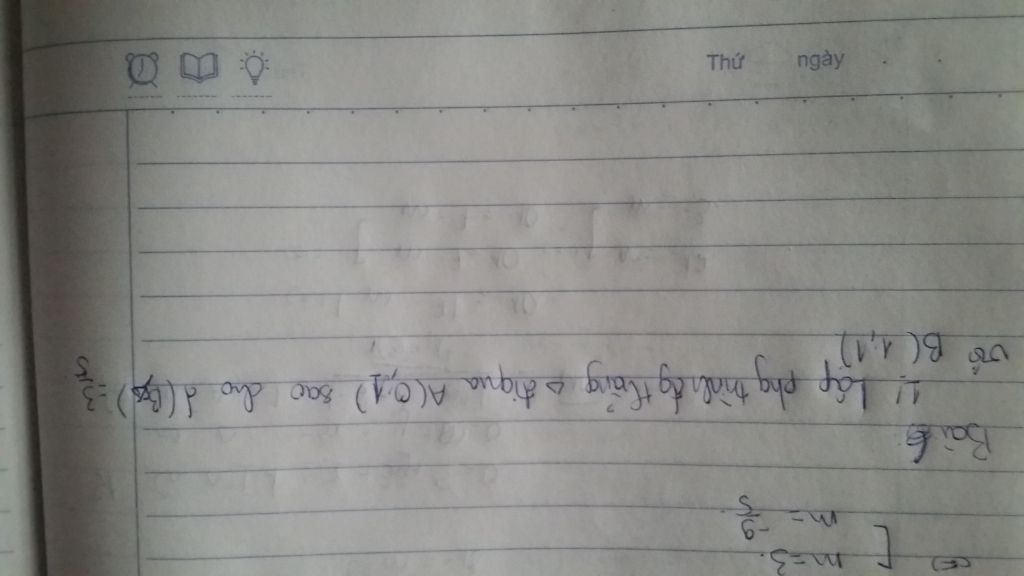 Thứ ngày
(=) [ m=3.
m = -9/5
Bài 6
1: Lập phg trình đg thẳng Δ đi qua A(0,1) sao cho d(B,Δ) = 3/5
với B(1,1)